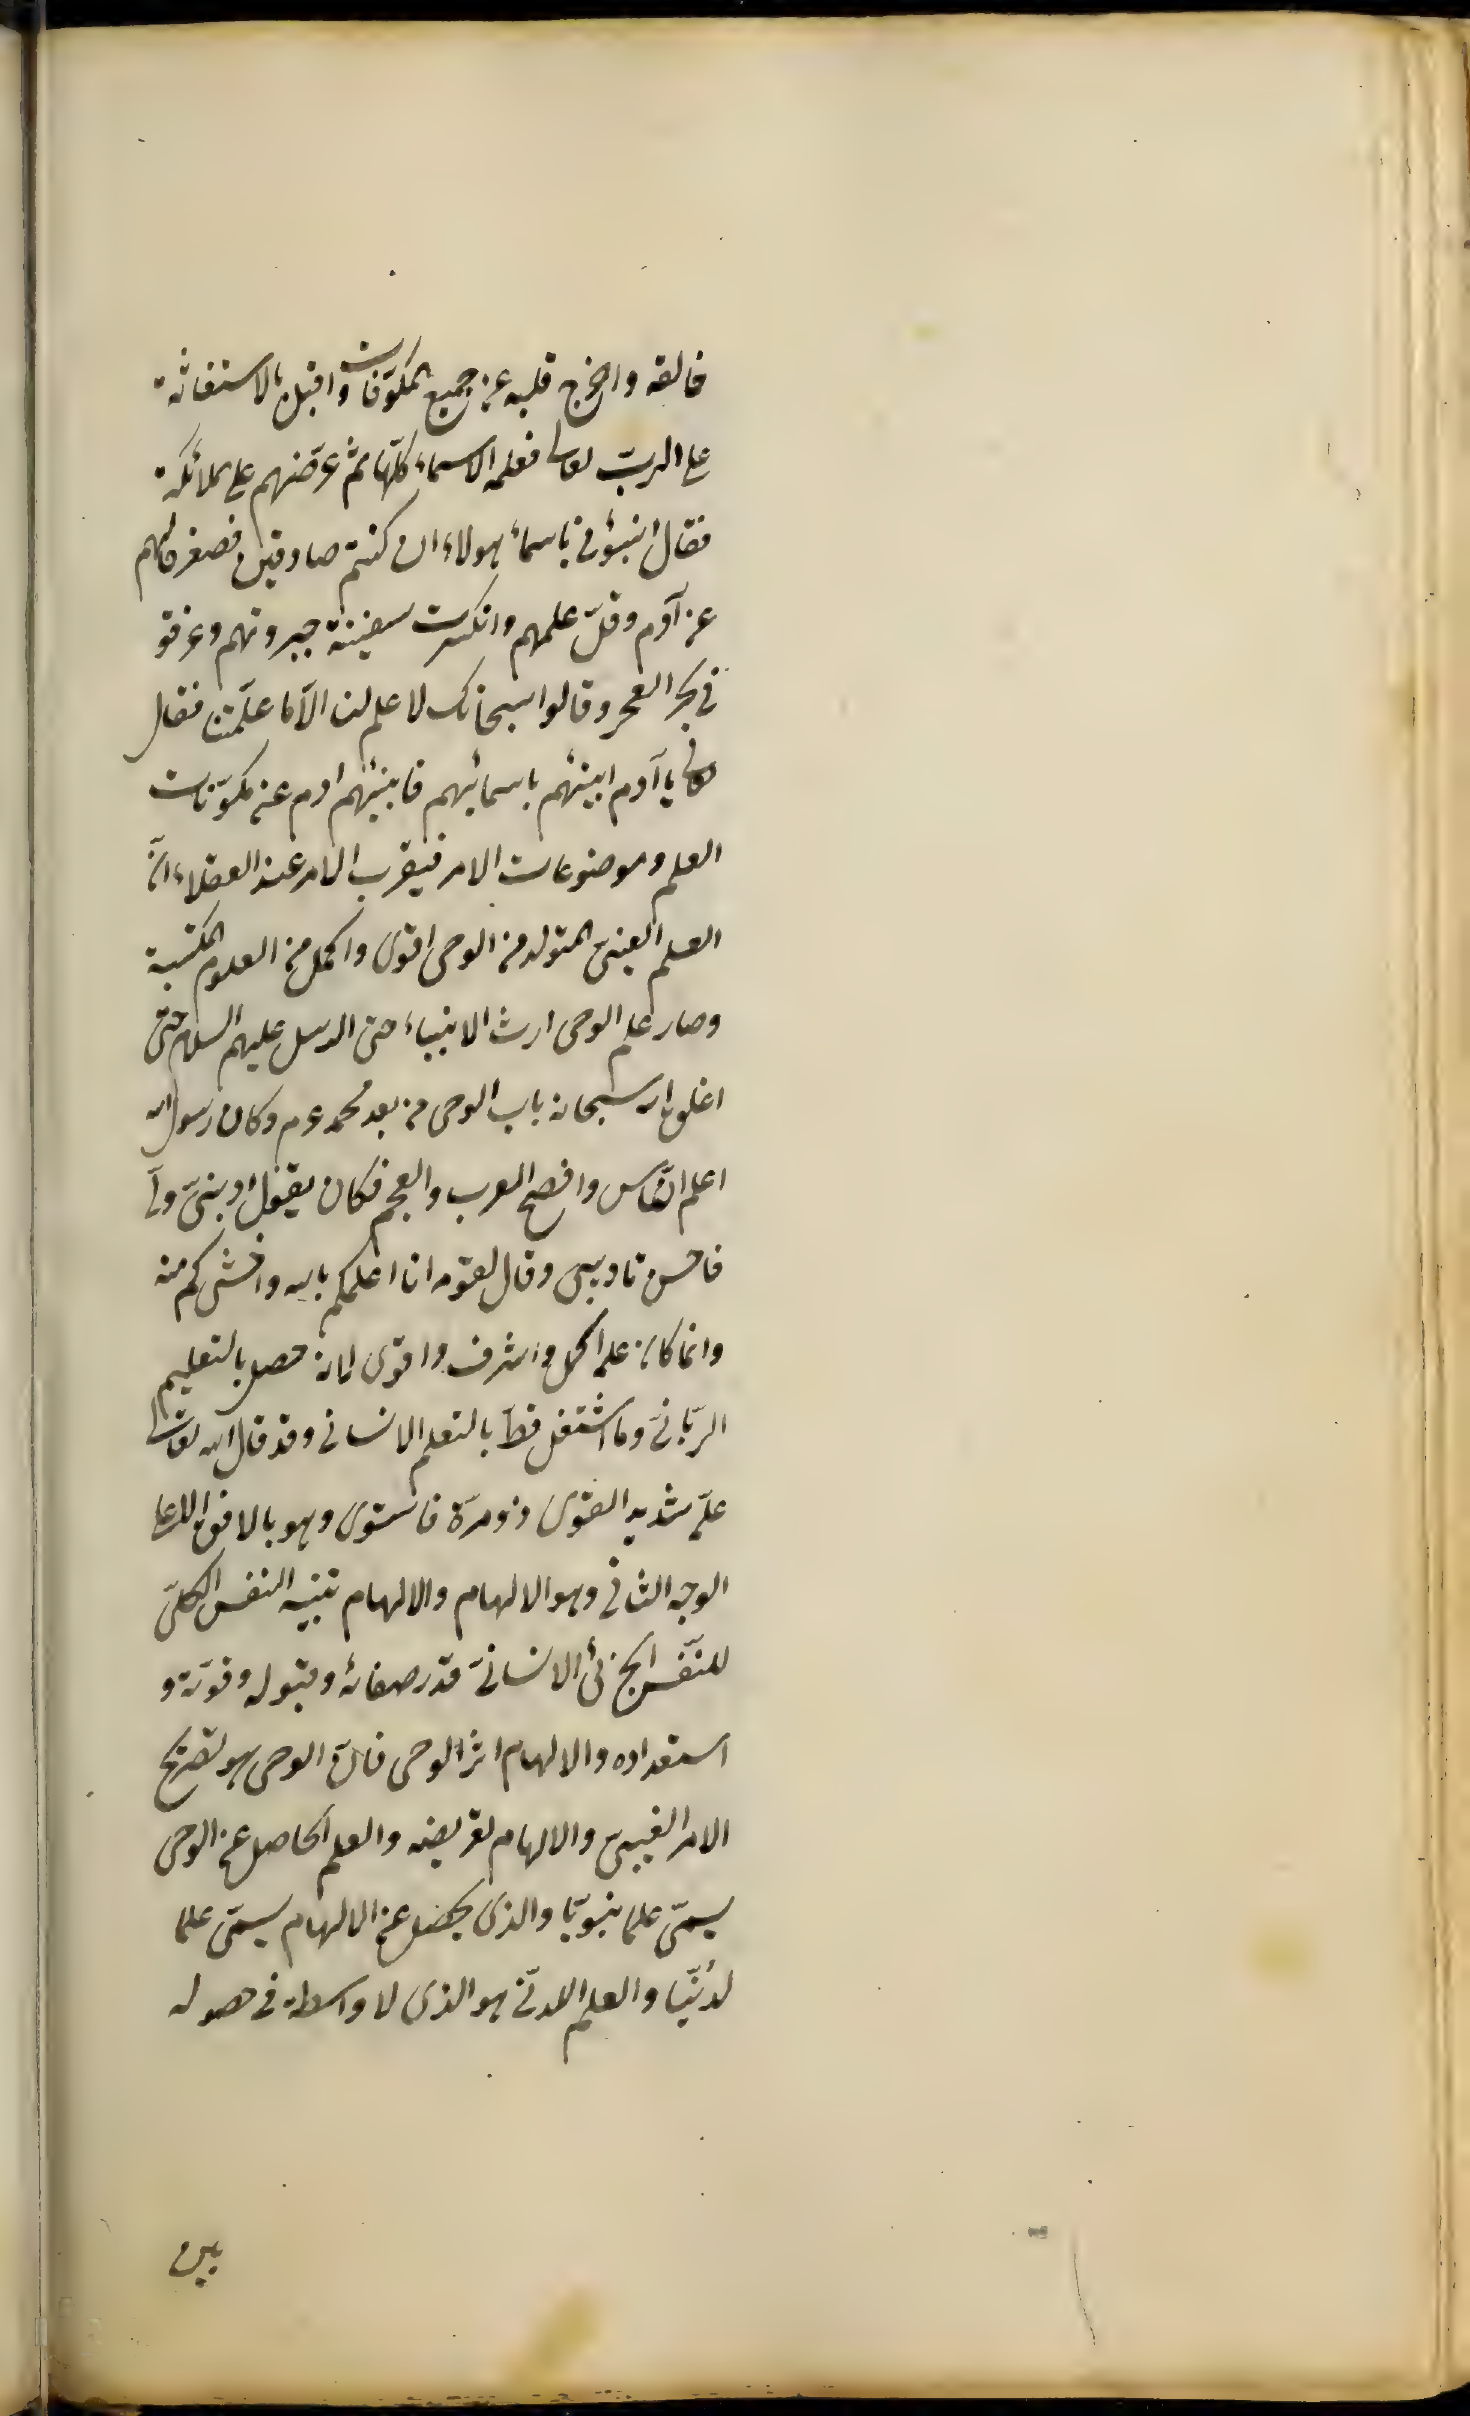 خالقه واخرج قلبه عن جميع المكوّنات واقبل بالاستغاثة
على الربّ تعالى فعلمه الاسماء كلّها ثمّ عرّضهم على الملائكة
فقال انبئونى باسماء هولاء ان كنتم صادقين فصغر حالهم
عن آدم وقلّ علمهم وانكسرت سفينة جبروتهم وغرقو
فى بحر العجز وقالوا سبحانك لا علم لنا الّا ما علّمتنا فقال
تعالى يا آدم انبئهم باسمائهم فانبئهم ادم عن مكوّنات
العلم وموضوعات الامر فيقرب الامر عند العقلاء انّ
العلم الغيبىّ المتولد من الوحى اقوى واكمل من العلوم المكتسبة
وصار علم الوحى ارث الانبياء حق الرسل عليهم السلام حتّى
اغلق الله سبحانه باب الوحى من بعد محمد عم وكان رسول الله
اعلم النّاس وافصح العرب والعجم فكان يقول ادبنىّ ربّى
فاحسن تاديبى وقال لقومه انا اعلمكم بالله واخشىكم منه
وانما كان علمه اكمل واشرف واقوى لانه حصل بالتعليم
الربّانىّ وما اشتغل قطّ بالتعلم الانسانى وقد قال الله تعالى
علّمه شديد القوى ذو مرّة فاستوى وهو بالافق الاعلى
الوجه الثانى وهو الالهام والالهام تنبيه النفس الكلىّ
للنّفس الجزئى الانسانىّ قدر صفائه وقبوله وقوّته و
استعداده والالهام اثر الوحى فانّ الوحى هو تصريح
الامر الغيبىّ والالهام تعريضه والعلم الحاصل عن الوحى
يسمّى علما نبويّا والذى يحصل عن الالهام يسمّى علما
لدنيّا والعلم اللدنّى هو الذى لا واسطة فى حصوله
بين